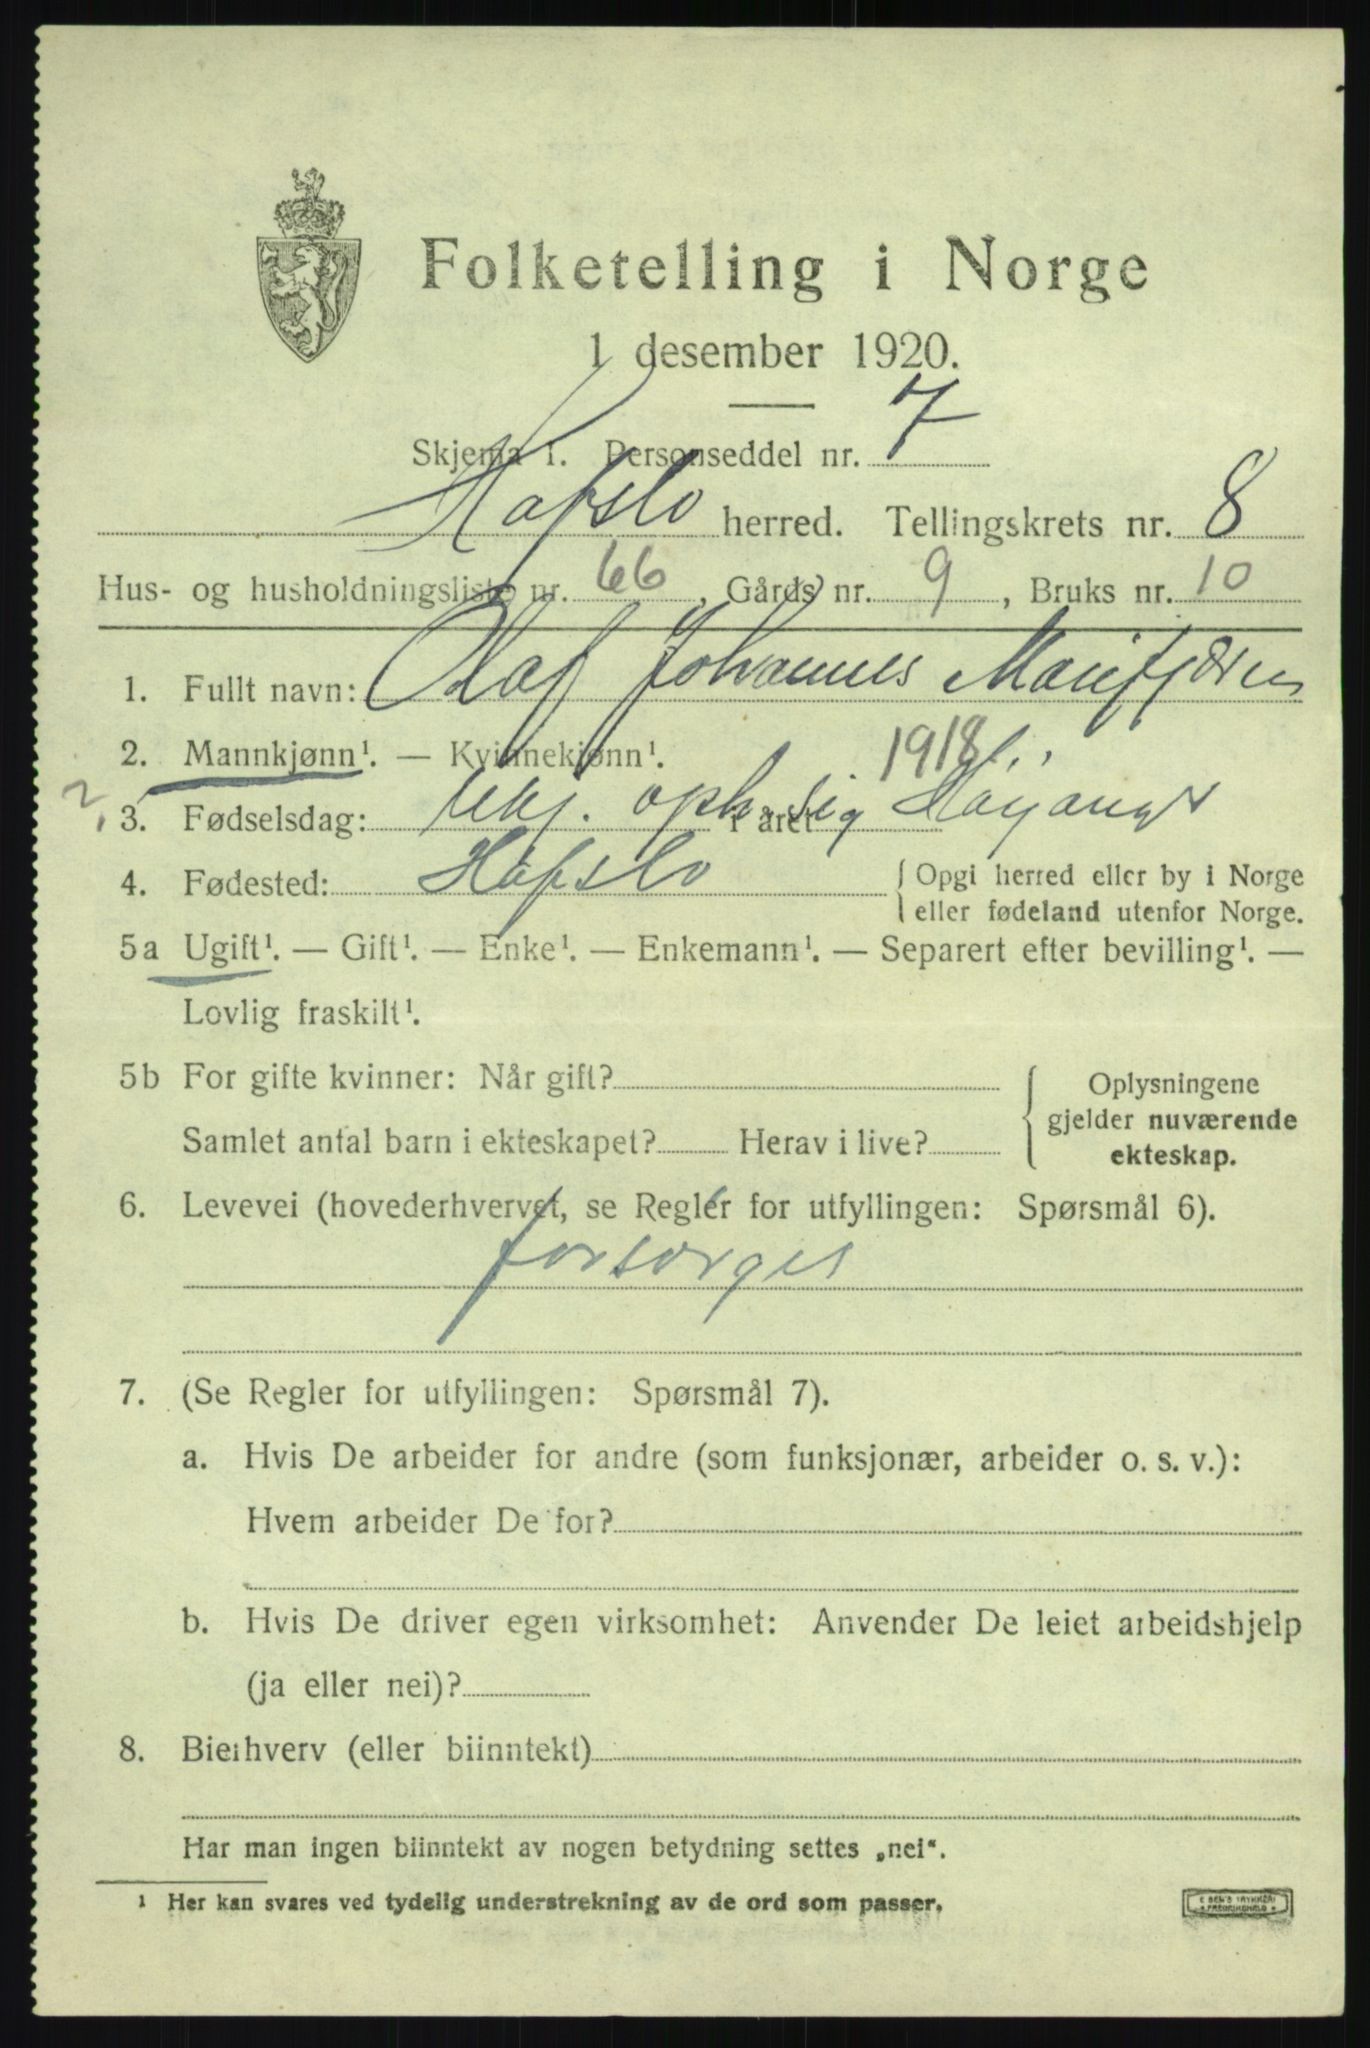 Folketelling i Norge
1 desember 1920.
Skjema 1. Personseddel nr. 7
Hafslo herred. Tellingskrets nr. 8
Hus- og husholdningsliste nr. 66, Gårds nr. 9, Bruks nr. 10
1. Fullt navn: Olaf Johannes Marifjæren
2. Mannkjønn¹. — Kvinnekjønn¹.
? 3. Fødselsdag: Ubj. oph. sig i året 1918. Høyanger
4. Fødested: Hafslo { Opgi herred eller by i Norge
eller fødeland utenfor Norge.
5a Ugift¹. — Gift¹. — Enke¹. — Enkemann¹. — Separert efter bevilling¹. —
Lovlig fraskilt¹.
5b For gifte kvinner: Når gift?
Samlet antal barn i ekteskapet? Herav i live?
{ Oplysningene
gjelder nuværende
ekteskap.
6. Levevei (hovederhvervet, se Regler for utfyllingen: Spørsmål 6).
forsørges
7. (Se Regler for utfyllingen: Spørsmål 7).
a. Hvis De arbeider for andre (som funksjonær, arbeider o. s. v.):
Hvem arbeider De for?
b. Hvis De driver egen virksomhet: Anvender De leiet arbeidshjelp
(ja eller nei)?
8. Bierhverv (eller biinntekt)
Har man ingen biinntekt av nogen betydning settes „nei“.
¹ Her kan svares ved tydelig understrekning av de ord som passer.